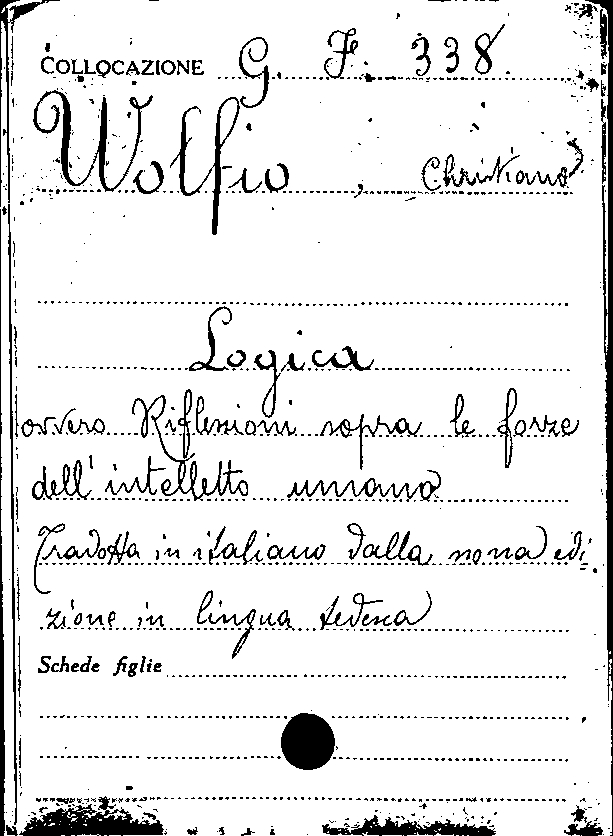 COLLOCAZIONE G. F. 338.
Wolfio, Christiano
Logica
ovvero Riflessioni sopra le forze
dell' intelletto umano
Tradotta in italiano dalla nona edi=
zione in lingua tedesca
Schede figlie